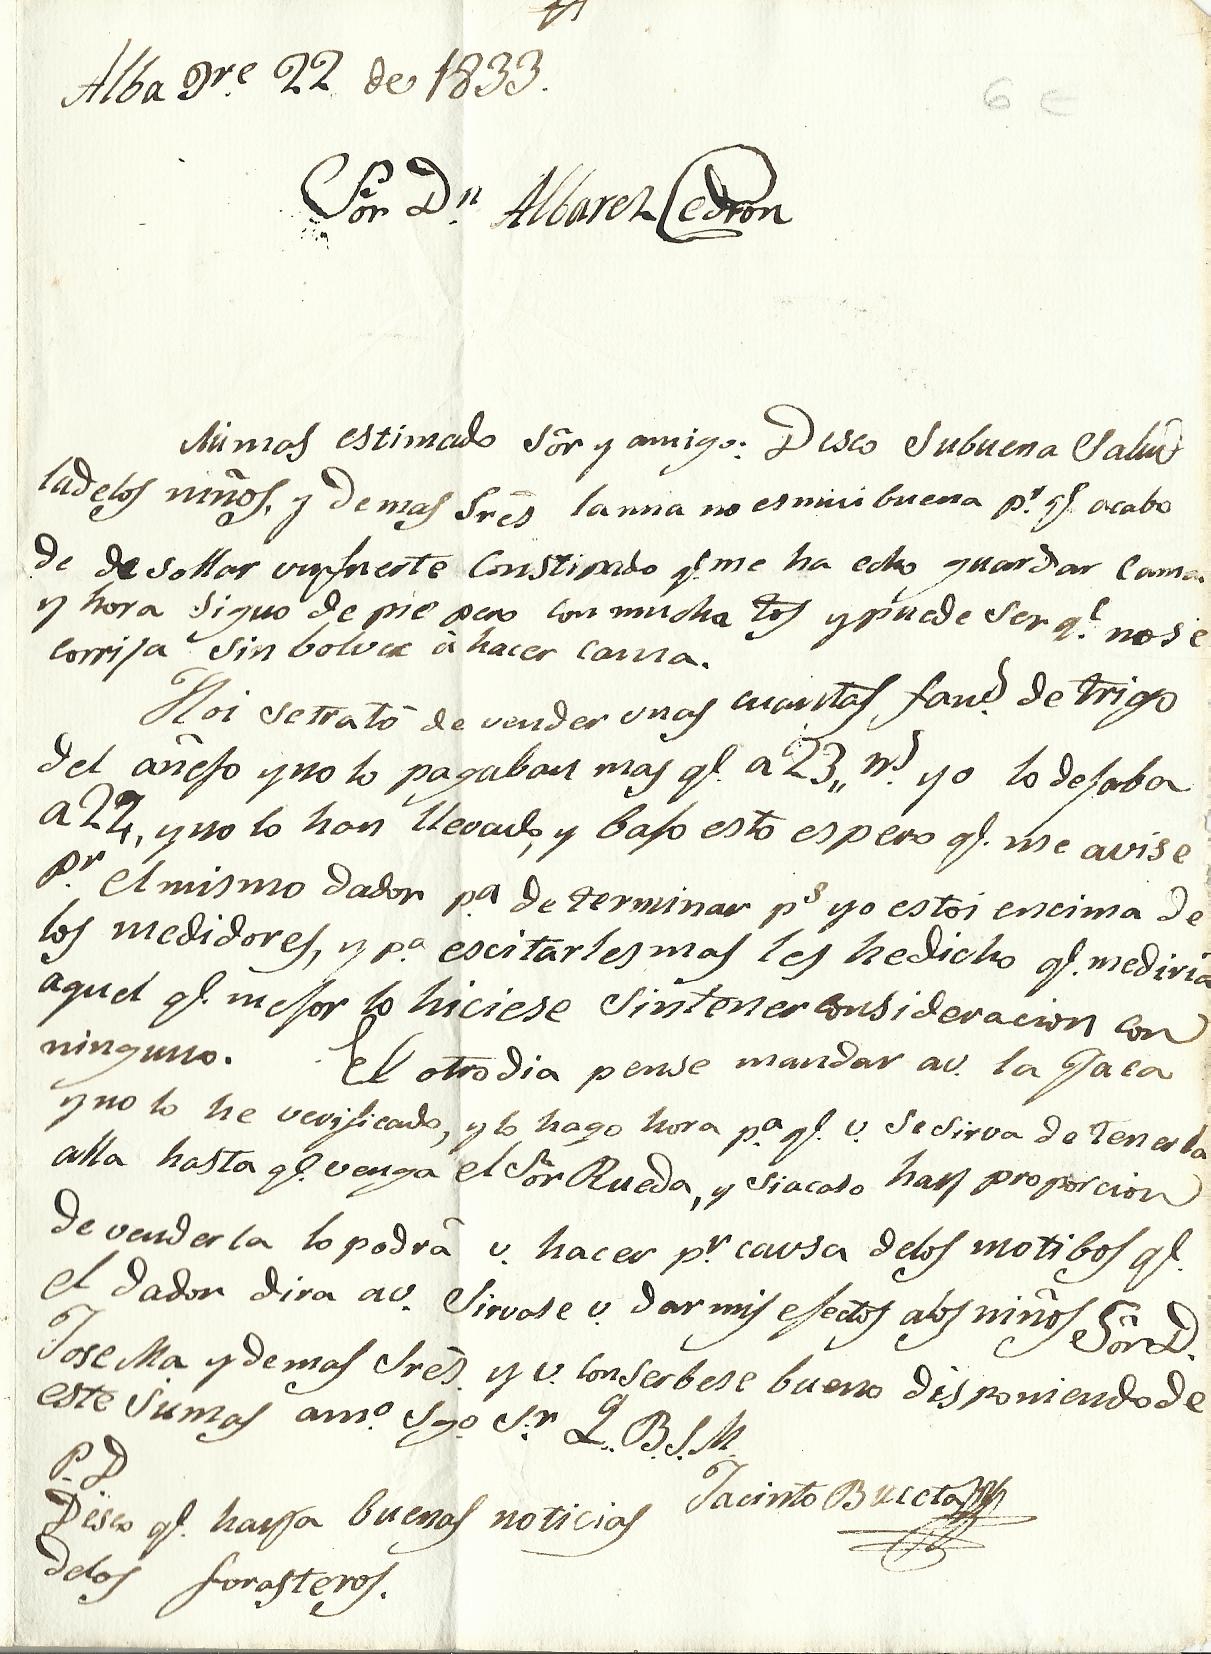 Alba Dre. 22 de 1833.
6 €
Sor Dn. Albarez Cedron
Mui mas estimado Sõr y amigo: Deseo su buena Salud
la delos niños, y demas Srẽs la mia no es mui buena pr. ql. acabo
de desollar un fuerte Constipado ql. me ha echo guardar cama
y hora siguo de pie pero con mucha tos y puede ser ql. no se
corrija sin bolver à hacer cama.
Hoi se trató de vender unas cuantas fans. de trigo
del añejo y no lo pagaban mas ql. a 23,, rrs. yo lo dejaba
a 24, y no lo han llevado, y bajo esto espero ql. me avise
pr. el mismo dador pa. determinar ps. yo estoi encima de
los medidores, y pa. escitarles mas les he dicho ql. mediria
aquel ql. mejor lo hiciese sin tener consideracion con
ninguno. El otro dia pense mandar a v. la Jaca
y no lo he verificado, y lo hago hora pa. ql. v. se sirva de tenerla
alla hasta ql. venga el Sõr Rueda, y si acaso hay proporcion
de venderla lo podrá v. hacer pr. causa delos motibos ql.
el dador dira a v. Sirvase v. dar mis efectos alos niños, Sõr D.
Jose Ma y demas Srẽs. y v. conserbese bueno disponiendo de
este su mas amo. sgo. sr. Q. B. S. M.
P. D
Jacinto
Deseo ql. haya buenas noticias
delos forasteros.